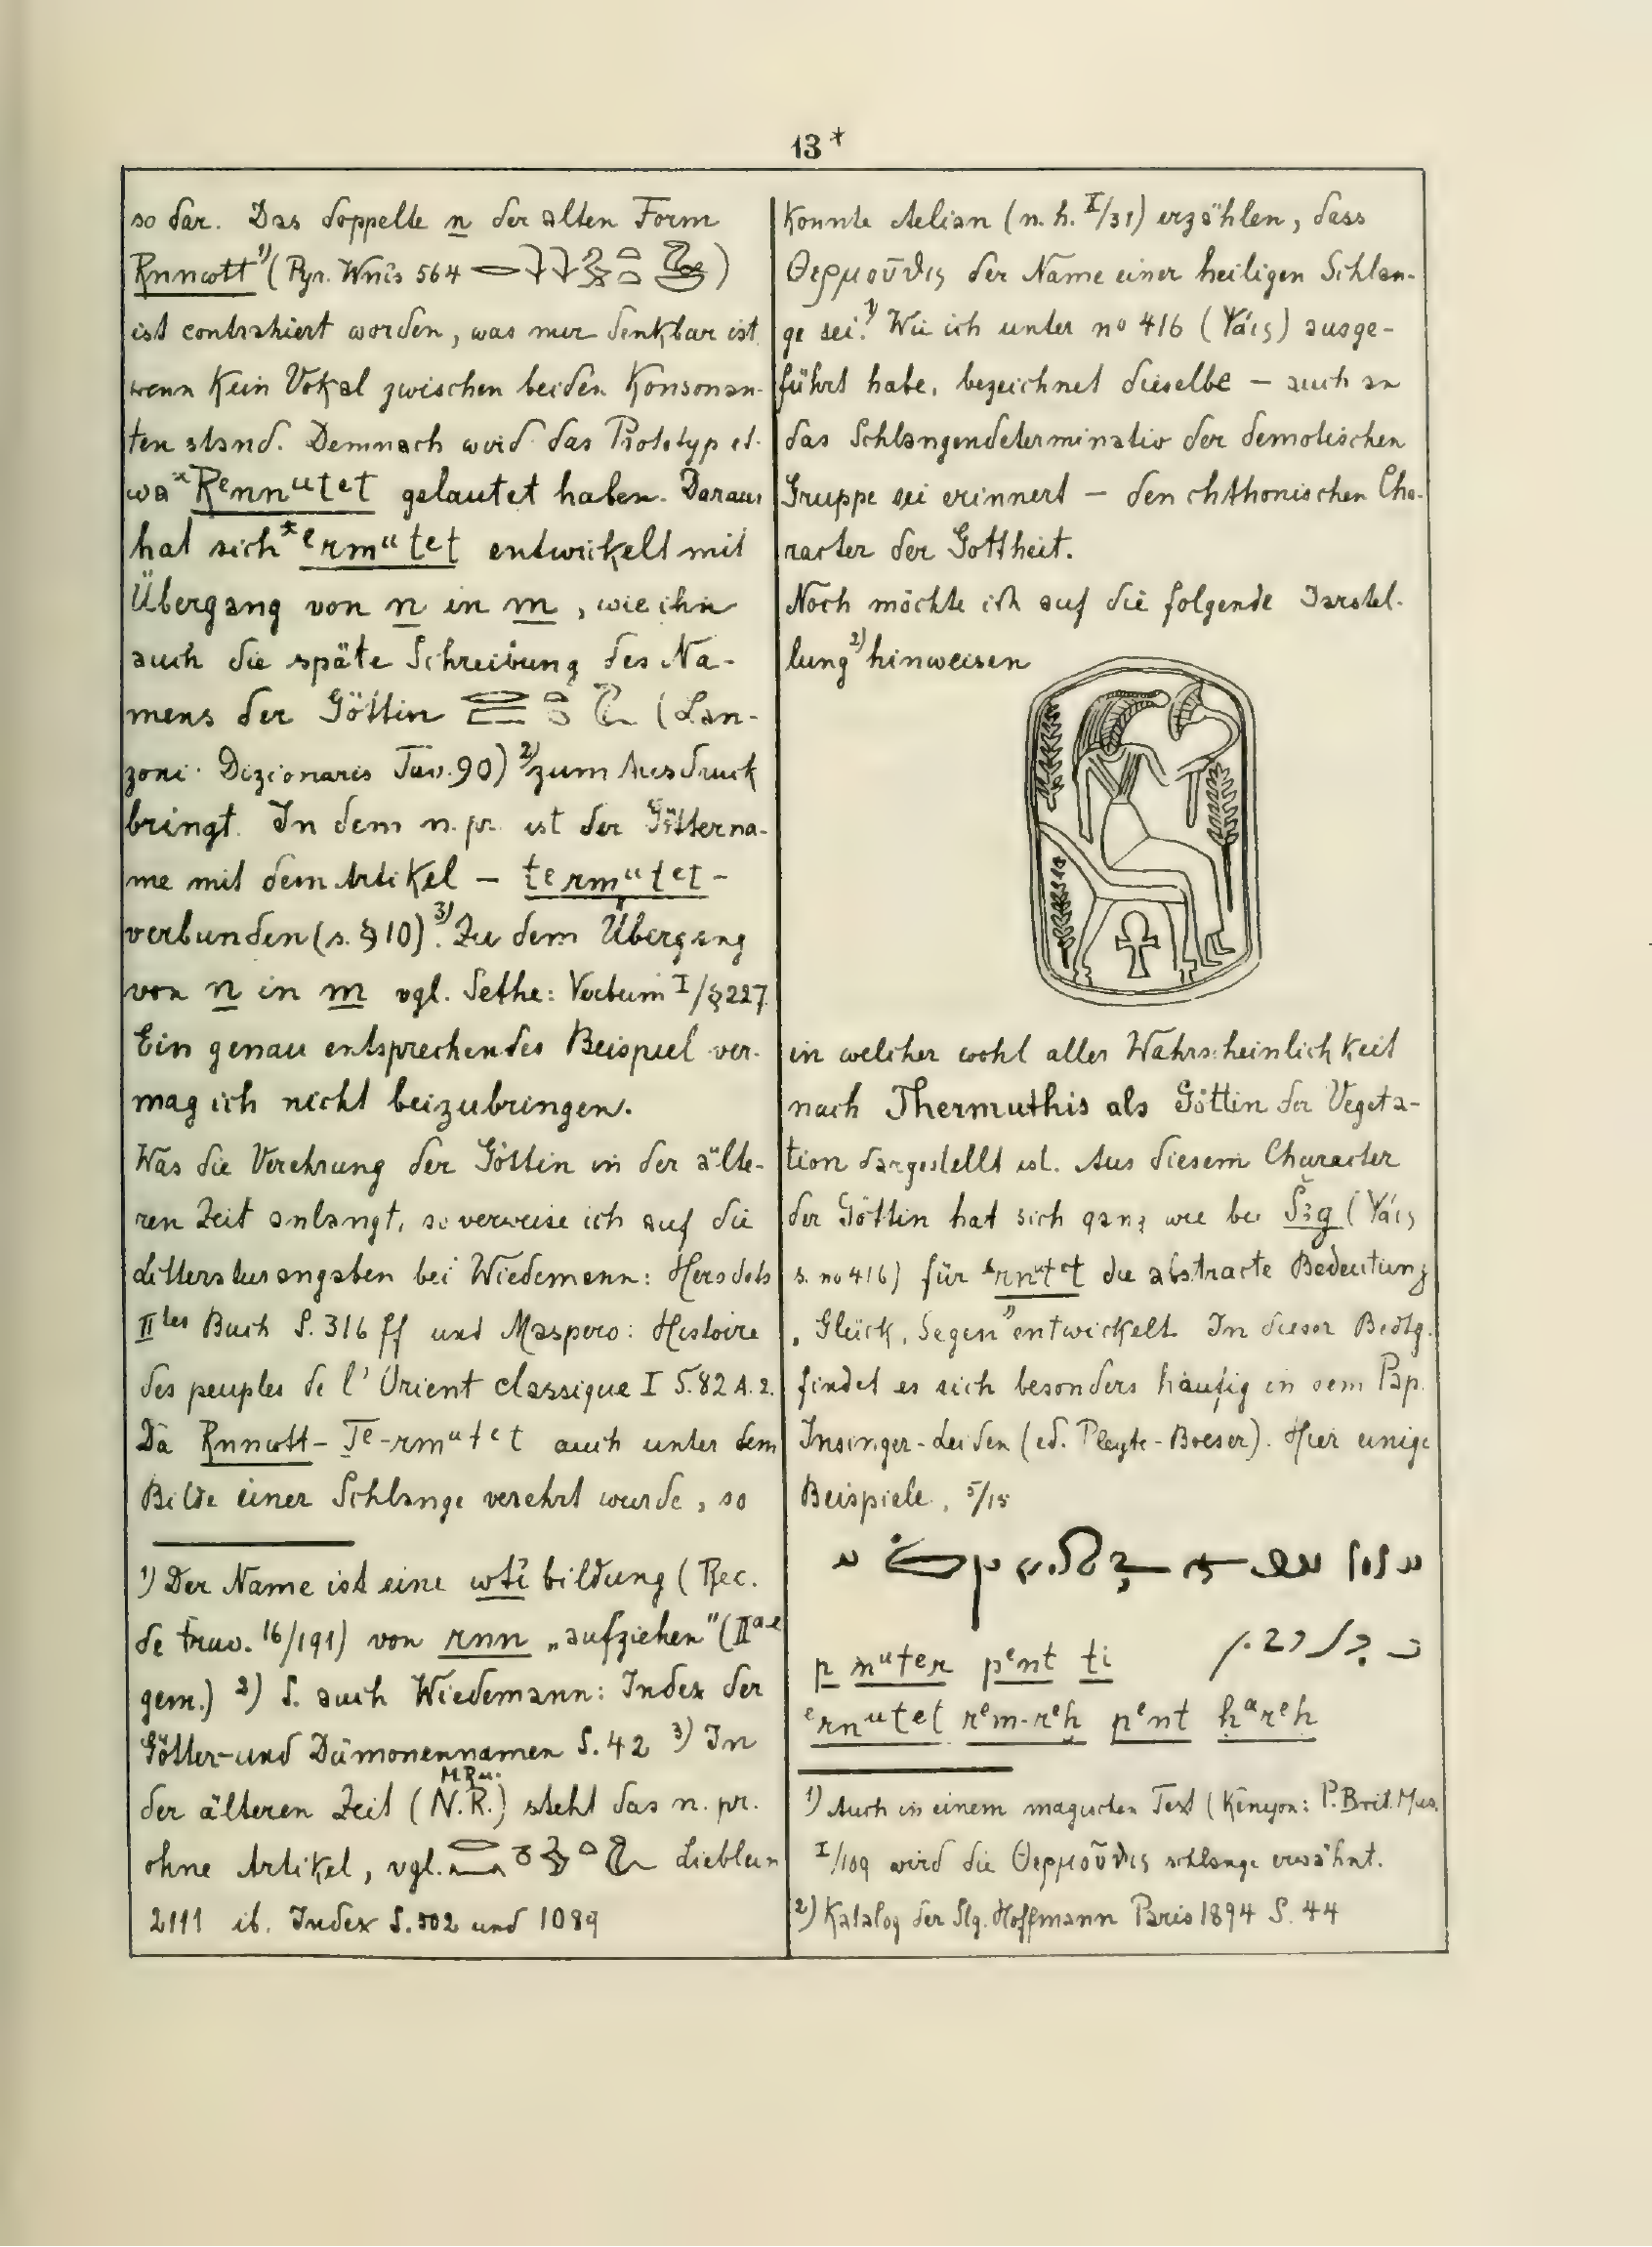 13*
so dar. Das doppelte n der alten Form
Rnnwtt ¹) (Pyr. Wnis 564 )
ist contrahiert worden, was nur denkbar ist
wenn kein Vokal zwischen beiden Konsonan-
ten stand. Demnach wird das Prototyp et-
wa *Rᵉnnᵘtᵉt gelautet haben. Daraus
hat sich *ᵉrmᵘtet entwickelt mit
Übergang von n in m, wie ihn
auch die späte Schreibung des Na-
mens der Göttin (Lan-
zone: Dizionario Tav. 90) ²) zum Ausdruck
bringt. In dem n. pr. ist der Götterna-
me mit dem Artikel — tᵉrmᵘtᵉt —
verbunden (s. § 10) ³). Zu dem Übergang
von n in m vgl. Sethe: Verbum I/§227
Ein genau entsprechendes Beispiel ver-
mag ich nicht beizubringen.
Was die Verehrung der Göttin in der älte-
ren Zeit anlangt, so verweise ich auf die
Litteraturangaben bei Wiedemann: Herodots
IItes Buch S. 316 ff und Maspero: Histoire
des peuples de l'Orient classique I S. 82 A. 2.
Da Rnnwtt - Tᵉ-rmᵘtᵉt auch unter dem
Bilde einer Schlange verehrt wurde, so
¹) Der Name ist eine wtī bildung (Rec.
de trav. 16/191) von rnn „aufziehen" (IIae
gem.) ²) S. auch Wiedemann: Index der
Götter- und Dämonennamen S. 42 ³) In
der älteren Zeit (N.R.) steht das n. pr.
ohne Artikel, vgl. Lieblein
2111 ib. Index S. 502 und 1089
konnte Aelian (n. h. I/31) erzählen, dass
Θερμοῦθις der Name einer heiligen Schlan-
ge sei. ¹) Wie ich unter no 416 (Ψάις) ausge-
führt habe, bezeichnet dieselbe — auch an
das Schlangendeterminativ der demotischen
Gruppe sei erinnert — den chthonischen Cha-
racter der Gottheit.
Noch möchte ich auf die folgende Darstel-
lung ²) hinweisen
in welcher wohl aller Wahrscheinlichkeit
nach Thermuthis als Göttin der Vegeta-
tion dargestellt ist. Aus diesem Character
der Göttin hat sich ganz wie bei (Ψάις
s. no 416) für *rnᵘtᵉt die abstracte Bedeutung
„Glück, Segen" entwickelt. In dieser Bedtg.
findet es sich besonders häufig in dem Pap.
Insinger-Leiden (ed. Pleyte-Boeser). Hier einige
Beispiele, 5/15
p nᵘter pᵉnt ti
ᵉrnᵘtet rᵉm-rᵉḥ pᵉnt ḥᵃrᵉḥ
¹) Auch in einem magischen Text (Kenyon: P. Brit. Mus.
I/109 wird die Θερμοῦθις schlange erwähnt.
²) Katalog der Slg. Hoffmann Paris 1894 S. 44